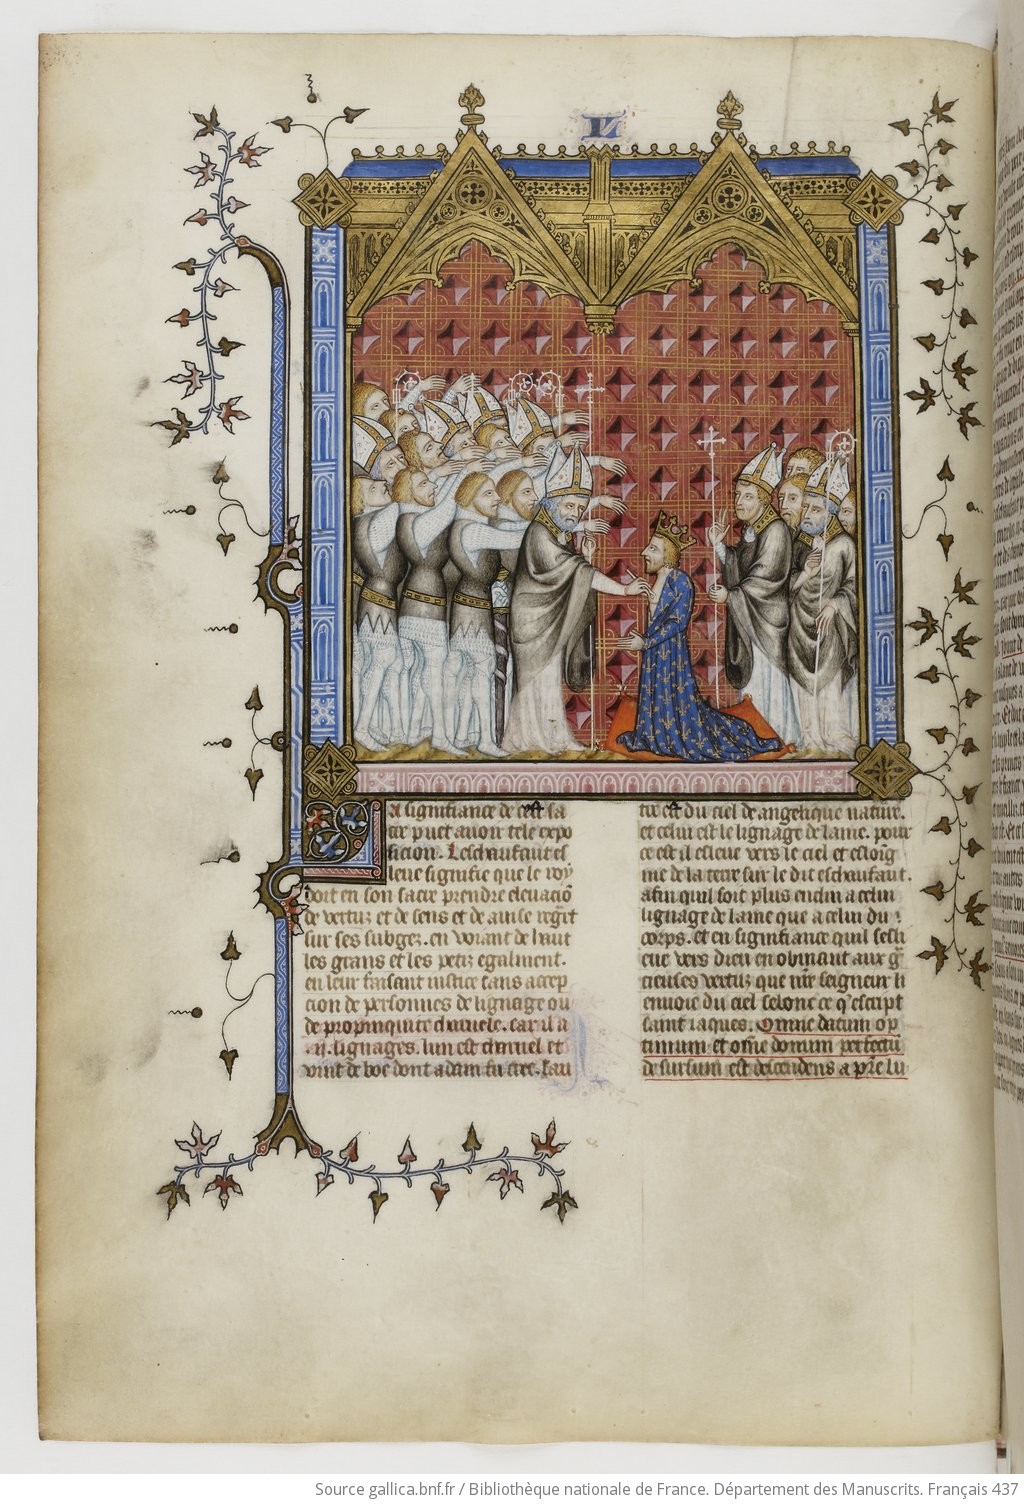 La signifiance de cest sa
cre puet auoir tele expo
sicion. Leschaufaut es
leue signifie que le roy
doit en son sacre prendre eleuaciõ
de vertuz et de sens et de auise regit
sur ses subgez. en voiant de haut
les grans et les petiz egalment.
en leur faisant iustice sans accep
cion de personnes de lignage ou
de propinquite charnele. car il a
.ii. lignages. lun est charnel et
vint de boe dont adam fu cree. Lau
tre est du ciel de angelique nature.
et celui est le lignage de lame. pour
ce est il esleue vers le ciel et esloig
nie de la terre sur le dit eschaufaut.
afin quil soit plus enclin a celui
lignage de lame que a celui du
corps. et en signifiance quil sesli
eue vers dieu en obinant aux g̃
cieuses vertuz que nr̃e seigneur li
enuoie du ciel selonc ce q̃ escript
saint iaques. Omne datum op
timum et om̃e donum perfectũ
desursum est descendens a pr̃e lu
Source gallica.bnf.fr / Bibliothèque nationale de France. Département des Manuscrits. Français 437